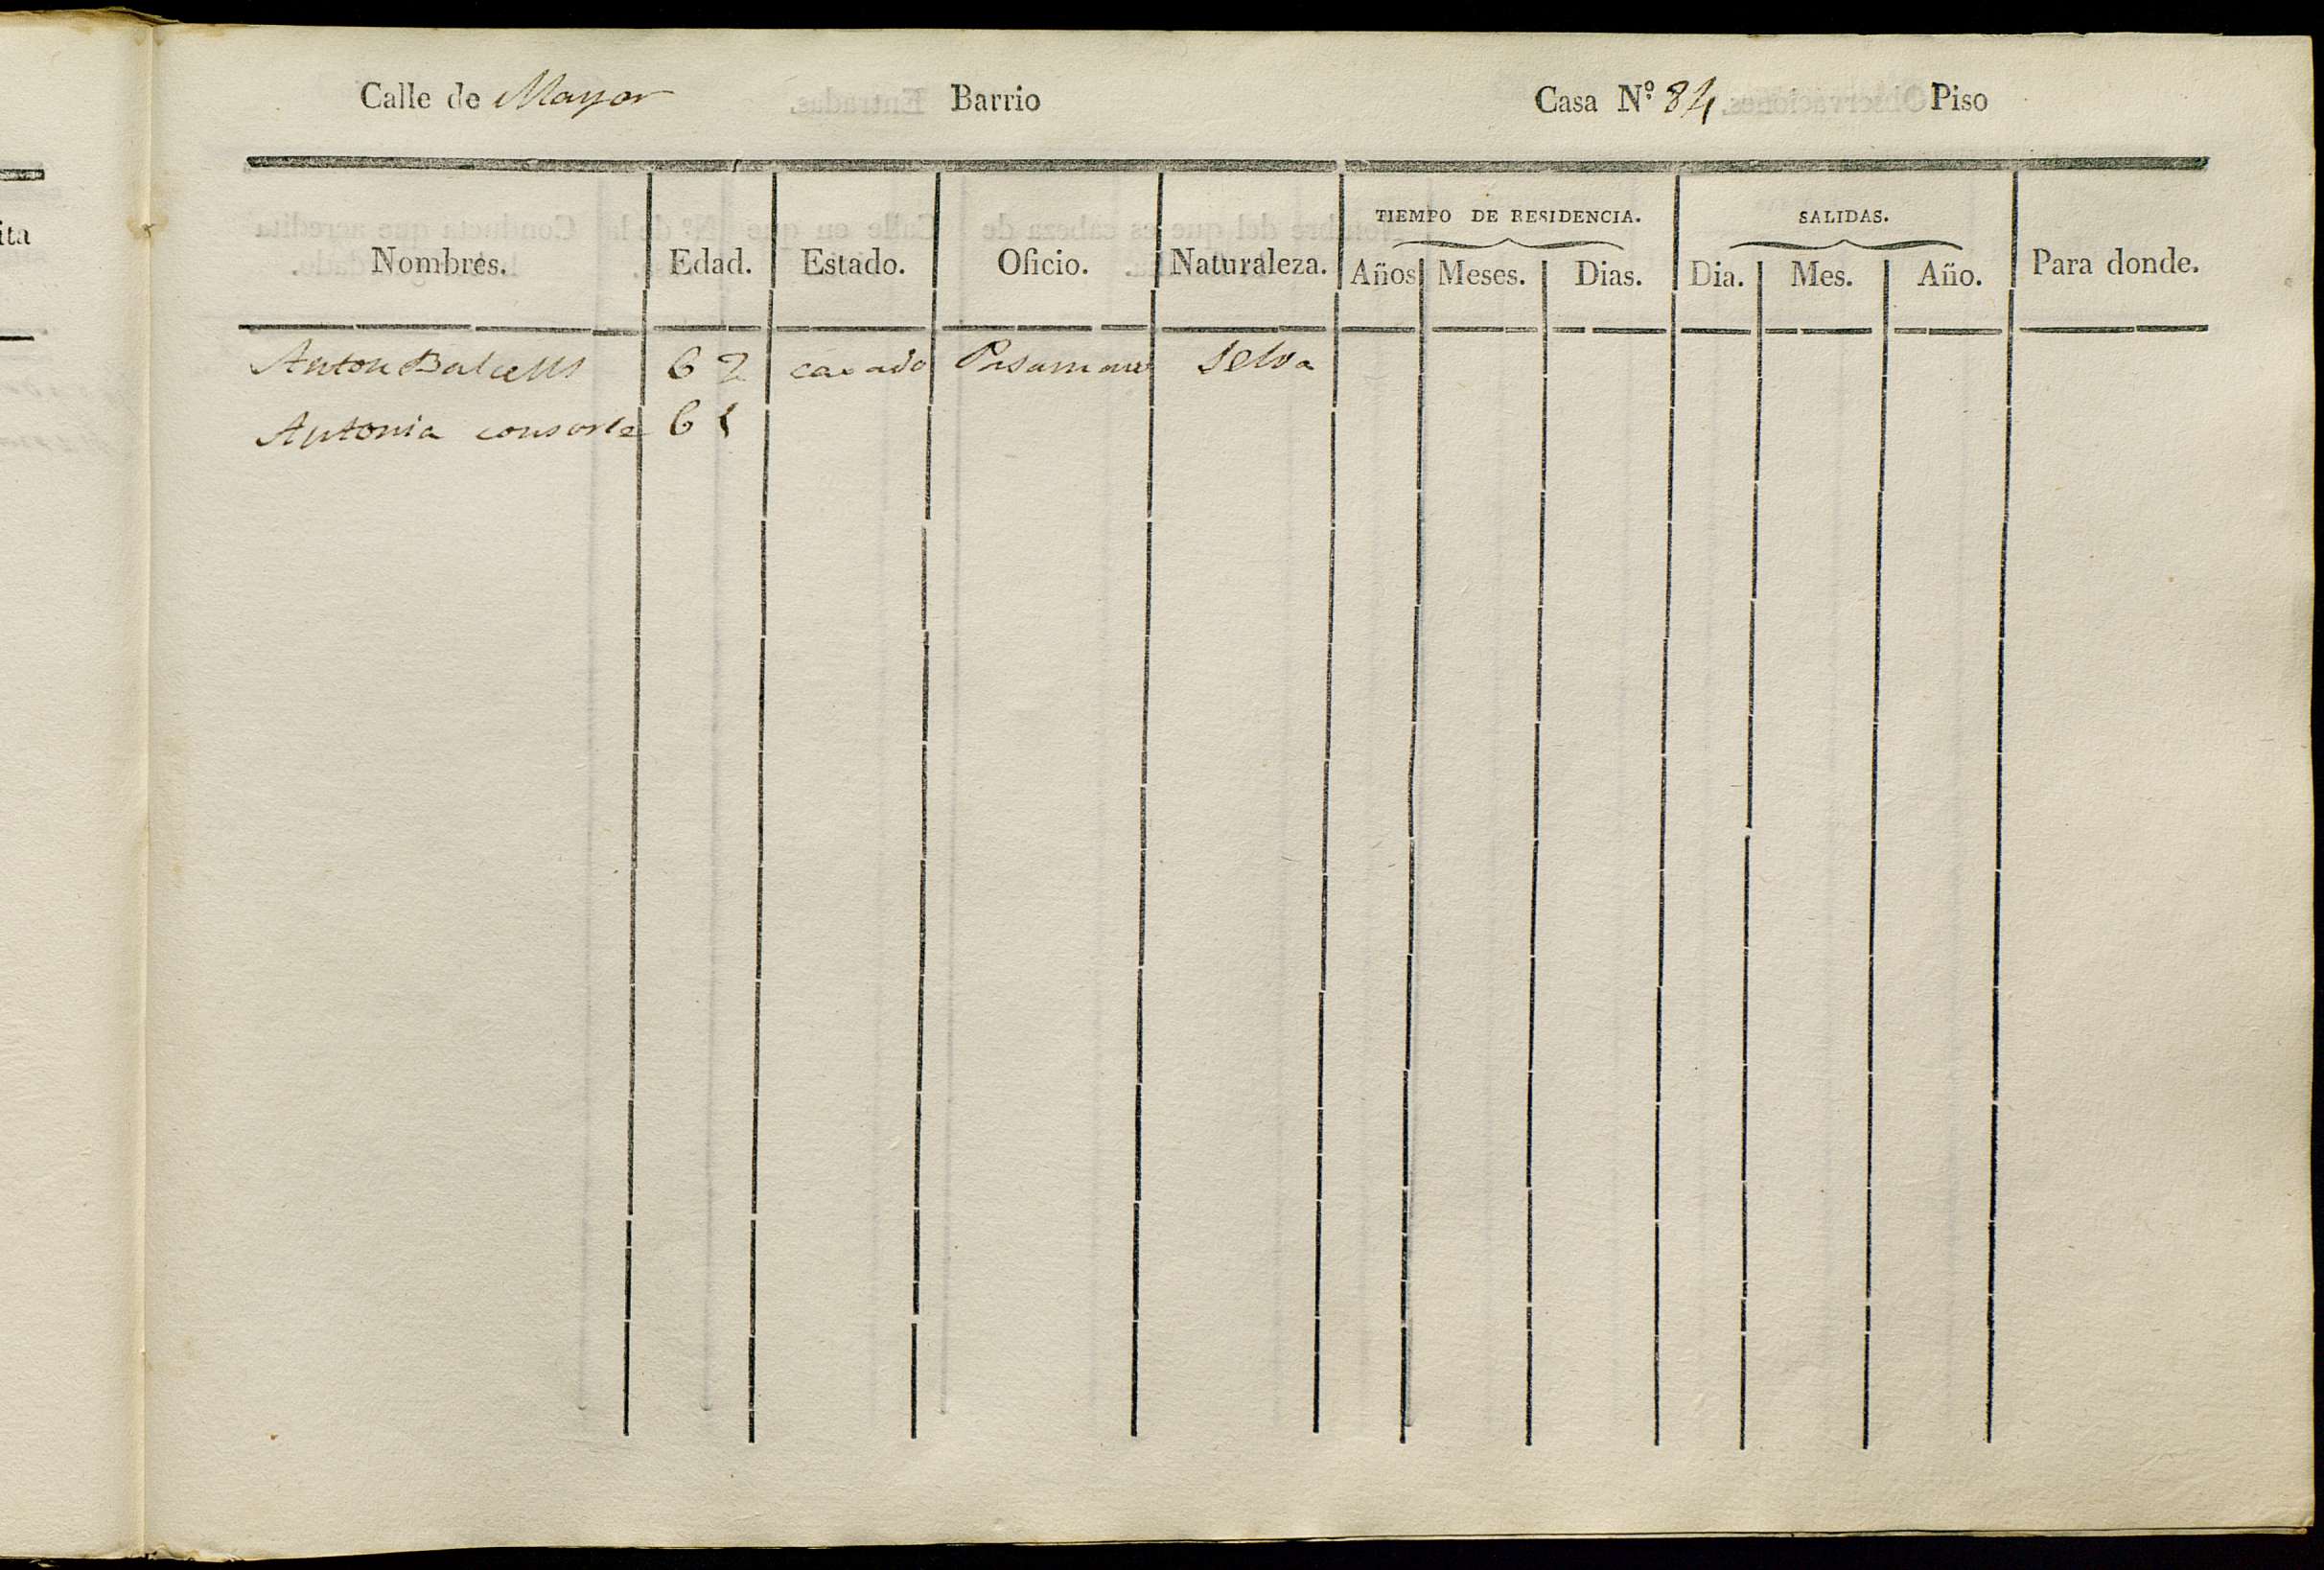 Calle de Mayor Barrio Casa N.º 84 Piso
TIEMPO DE RESIDENCIA. SALIDAS.
Nombres. Edad. Estado. Oficio. Naturaleza. Años Meses. Dias. Dia. Mes. Año. Para donde.
Anton Balcells 62 casado Selva
Antonia consorte 61
ita